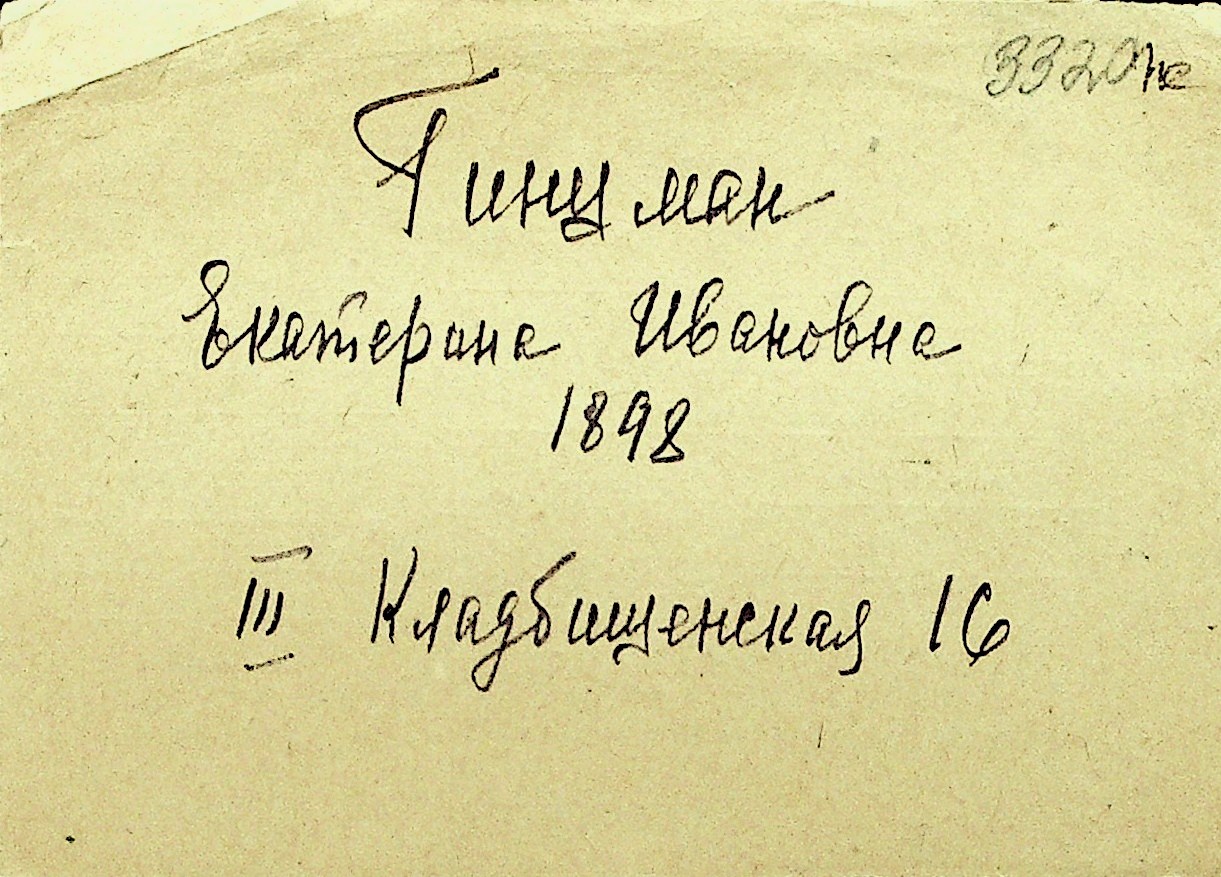 3320 не
Гинцман
Екатерина Ивановна
1898
III Кладбищенская 16